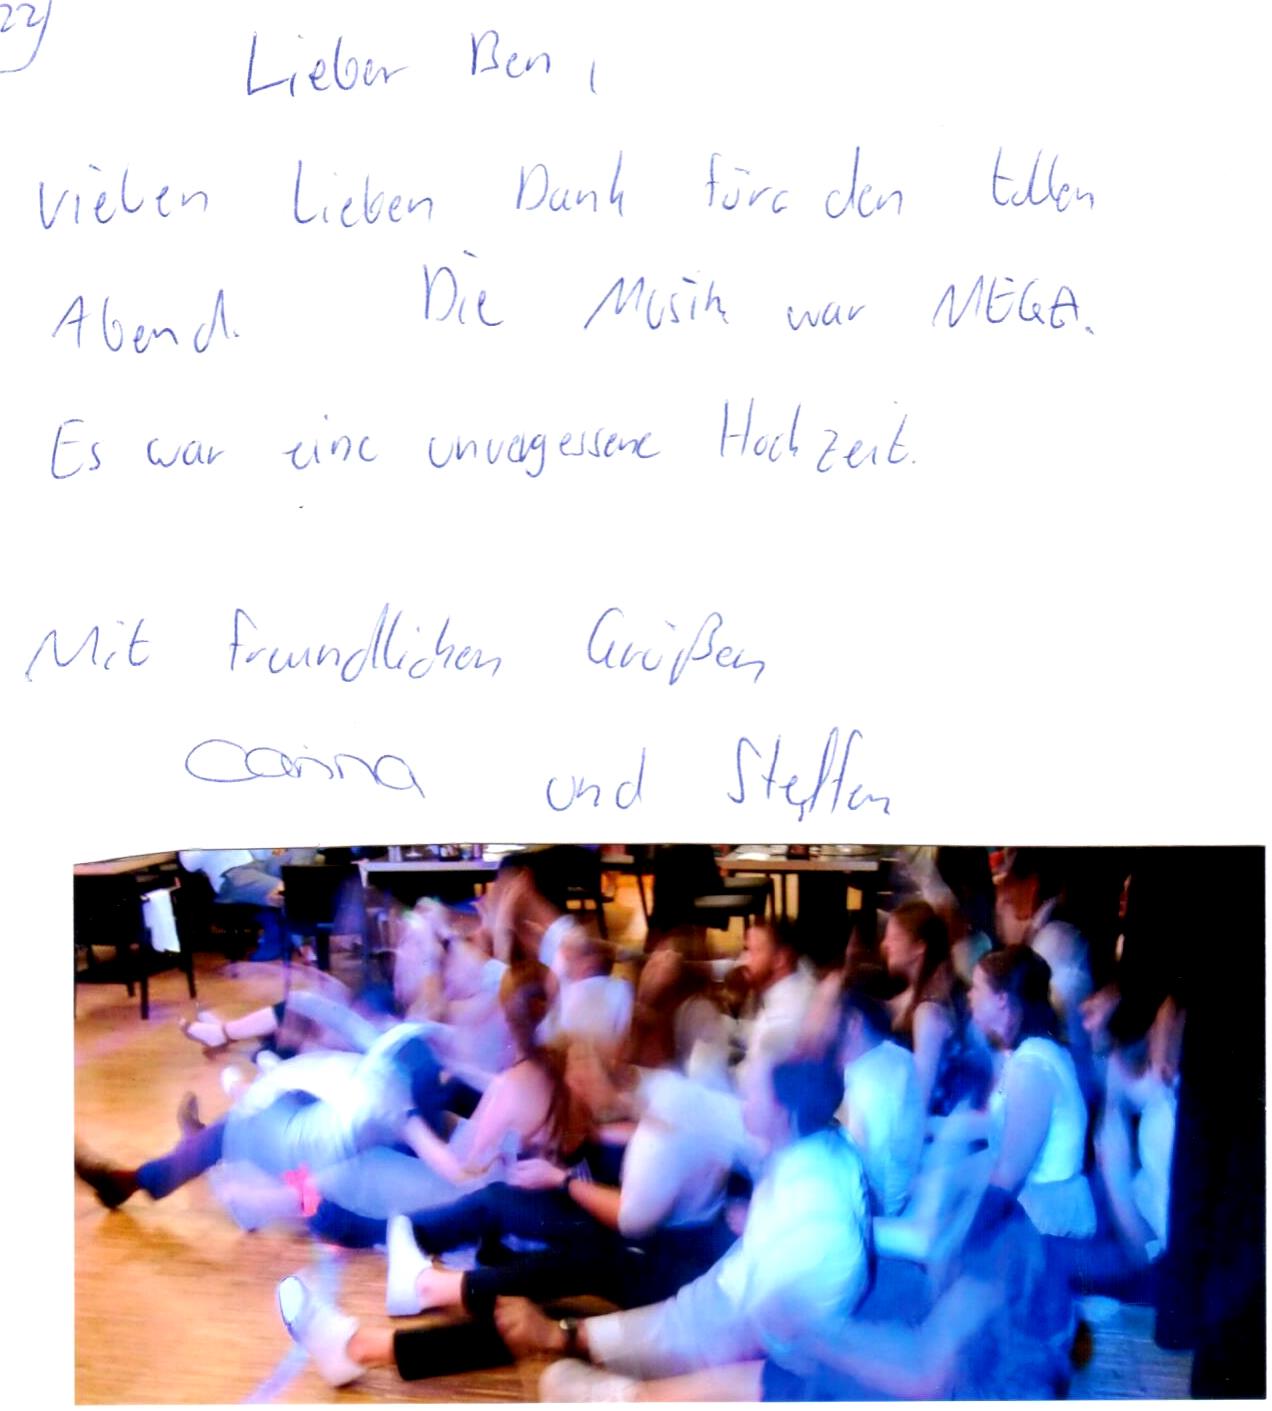 22)
Lieber Ben,
vielen lieben Dank für den tollen
Abend. Die Musik war MEGA.
Es war eine unvergessene Hochzeit.
Mit freundlichen Grüßen
Carina und Steffen